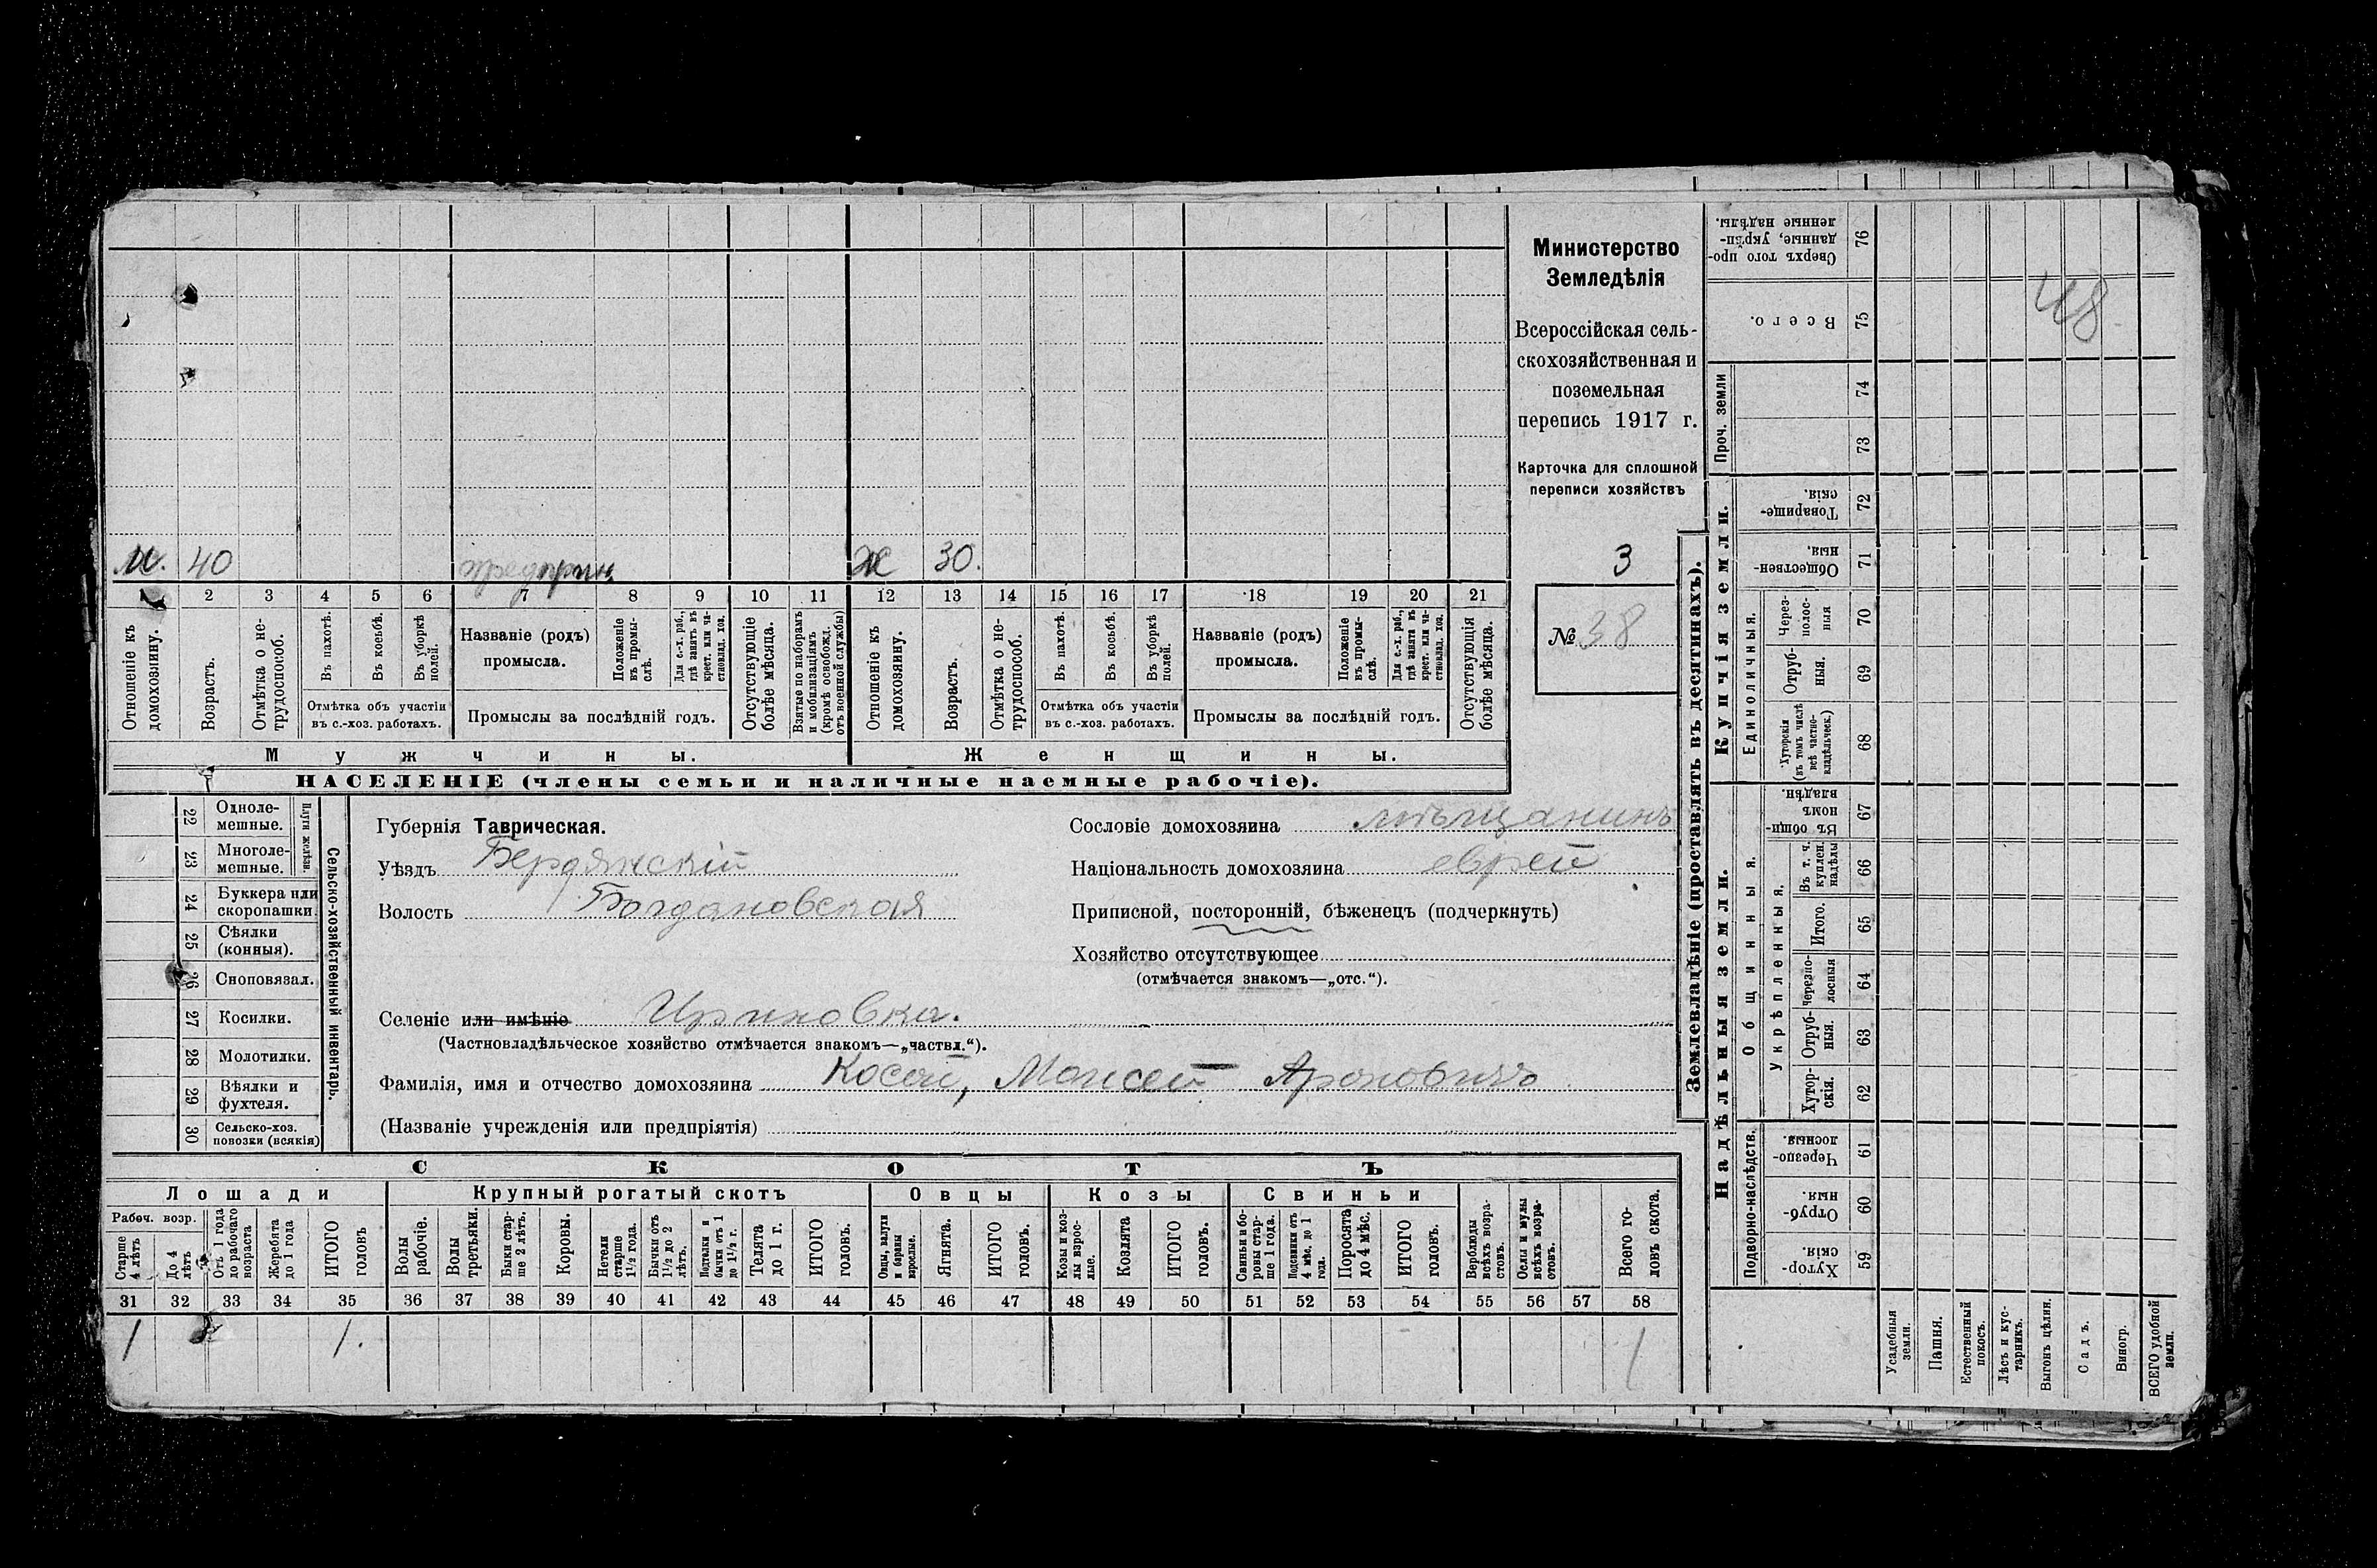 Министерство
Земледѣлія
Всероссійская сель-
скохозяйственная и
поземельная
перепись 1917 г.
Карточка для сплошной
переписи хозяйствъ
3
№ 38
48
40
предприн
Ж 30.
1 2 3 4 5 6 7 8 9 10 11 12 13 14 15 16 17 18 19 20 21
Отношеніе къ домохозяину.
Возрастъ.
Отмѣтка о не-трудоспособ.
Въ пахотѣ.
Въ косьбѣ.
Въ уборкѣ полей.
Отмѣтка объ участіи
въ с.-хоз. работахъ.
Названіе (родъ)
промысла.
Положеніе въ промы-слѣ.
Для с.-х. раб., гдѣ занятъ въ крест. или ча-стновлад. хоз.
Промыслы за послѣдній годъ.
Отсутствующіе болѣе мѣсяца.
Взятые по наборамъ и мобилизаціямъ (кромѣ освобожд. отъ военной службы)
Отношеніе къ домохозяину.
Возрастъ.
Отмѣтка о не-трудоспособ.
Въ пахотѣ.
Въ косьбѣ.
Въ уборкѣ полей.
Отмѣтка объ участіи
въ с.-хоз. работахъ.
Названіе (родъ)
промысла.
Положеніе въ промы-слѣ.
Для с.-х. раб., гдѣ занята въ крест. или ча-стновлад. хоз.
Промыслы за послѣдній годъ.
Отсутствующія болѣе мѣсяца.
Мужчины.
Женщины.
НАСЕЛЕНІЕ (члены семьи и наличные наемные рабочіе).
22 Одноле-мешные.
23 Многоле-мешные.
Плуги желѣзн.
24 Буккера или скоропашки.
25 Сѣялки (конныя).
26 Сноповязал.
27 Косилки.
28 Молотилки.
29 Вѣялки и фухтеля.
30 Сельско-хоз. повозки (всякія)
Сельско-хозяйственный инвентарь.
Губернія Таврическая.
Уѣздъ Бердянскій
Волость Богдановская
Сословіе домохозяина мѣщанинъ
Національность домохозяина еврей
Приписной, посторонній, бѣженецъ (подчеркнуть)
Хозяйство отсутствующее
(отмѣчается знакомъ—„отс.“).
Селеніе или имѣніе Ириновка.
(Частновладѣльческое хозяйство отмѣчается знакомъ—„частвл.“).
Фамилія, имя и отчество домохозяина Косой, Моисей Ароновичъ
(Названіе учрежденія или предпріятія)
СКОТЪ
Лошади
Крупный рогатый скотъ
Овцы
Козы
Свиньи
Рабоч. возр.
Старше 4 лѣтъ
До 4 лѣтъ
Отъ 1 года до рабочаго возраста
Жеребята до 1 года
ИТОГО головъ
Волы рабочіе.
Волы третьяки.
Быки стар-ше 2 лѣтъ.
Коровы.
Нетели старше 1½ года.
Бычки отъ 1½ до 2 лѣтъ.
Подтелки и бычки отъ 1 до 1½ г.
Телята до 1 г.
ИТОГО головъ.
Овцы, валухи и бараны взрослые.
Ягнята.
ИТОГО головъ.
Козы и коз-лы взрос-лые.
Козлята
ИТОГО головъ.
Свиньи и бо-ровы стар-ше 1 года.
Подсвинки отъ 4 мѣс. до 1 года.
Поросята до 4 мѣс.
ИТОГО головъ.
Верблюды всѣхъ возра-стовъ.
Ослы и мулы всѣхъ возра-стовъ.
Всего го-ловъ скота.
31 32 33 34 35 36 37 38 39 40 41 42 43 44 45 46 47 48 49 50 51 52 53 54 55 56 57 58
1 1. 1
Землевладѣніе (проставлять въ десятинахъ).
Купчія земли.
Надѣльныя земли.
Проч. земли
Единоличныя.
Общинныя.
Укрѣпленныя.
Подворно-наслѣдств.
Сверхъ того про-данные, укрѣп-ленные надѣлы. 76
Всего. 75
74
73
Товарище-скія. 72
Обществен-ныя. 71
Через-полос-ныя 70
Отруб-ныя. 69
Хуторскія (въ томъ числѣ всѣ частно-владѣльческ.) 68
Въ общи-номъ владѣн. 67
Въ т. ч. куплен. надѣлы 66
Итого. 65
Черезпо-лосныя 64
Отруб-ныя. 63
Хутор-скія. 62
Черезпо-лосныя. 61
Отруб-ныя. 60
Хутор-скія. 59
Усадебныя земли.
Пашня.
Естественный покосъ.
Лѣсъ и кус-тарникъ.
Выгонъ цѣлин.
Садъ.
Виногр.
ВСЕГО удобной земли.